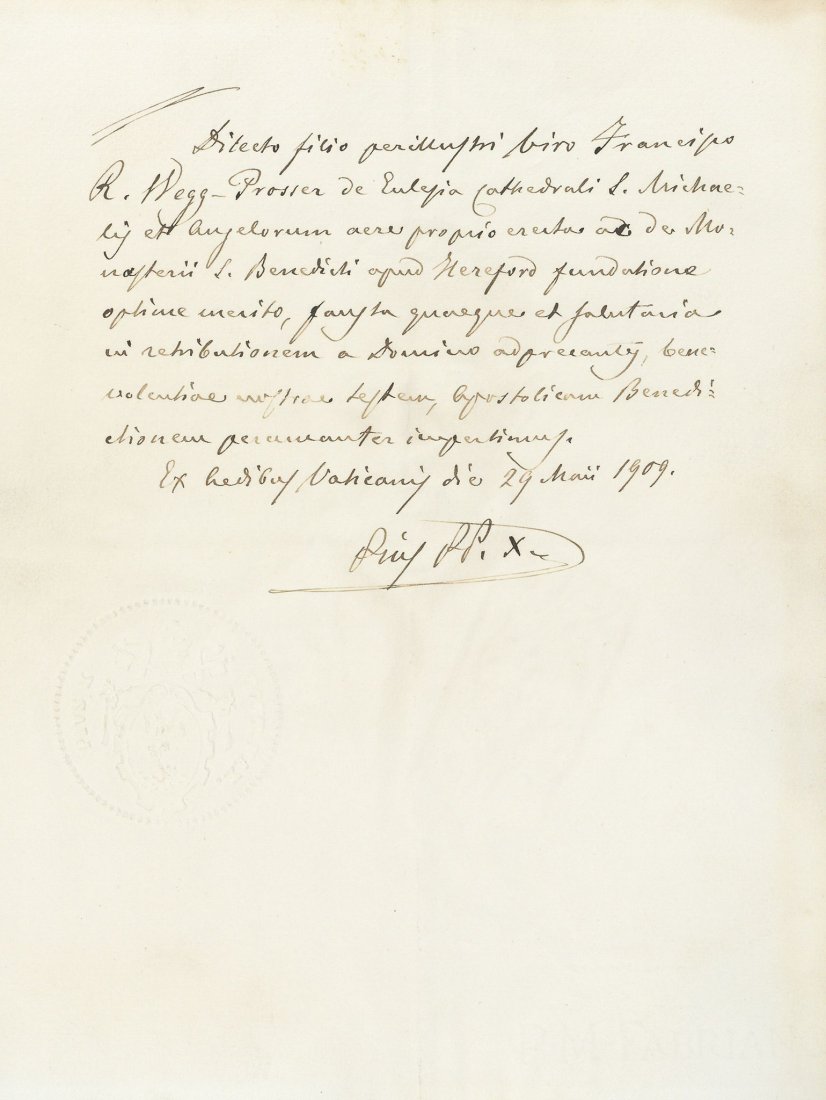 Dilecto filio perillustri viro Francisco
R. Wegg-Prosser de Eclesia Cathedrali S. Michae=
lis et Angelorum aere proprio erecta ac de Mo=
nasterii S. Benedicti apud Hereford fundatione
optime merito, fausta quaeque et salutaria
in retributionem a Domino adprecantes, bene=
volentiae nostrae testem, Apostolicam Benedi=
ctionem peramanter impertimus.
Ex Aedibus Vaticanis die 29 Maii 1909.
Pius PP. X